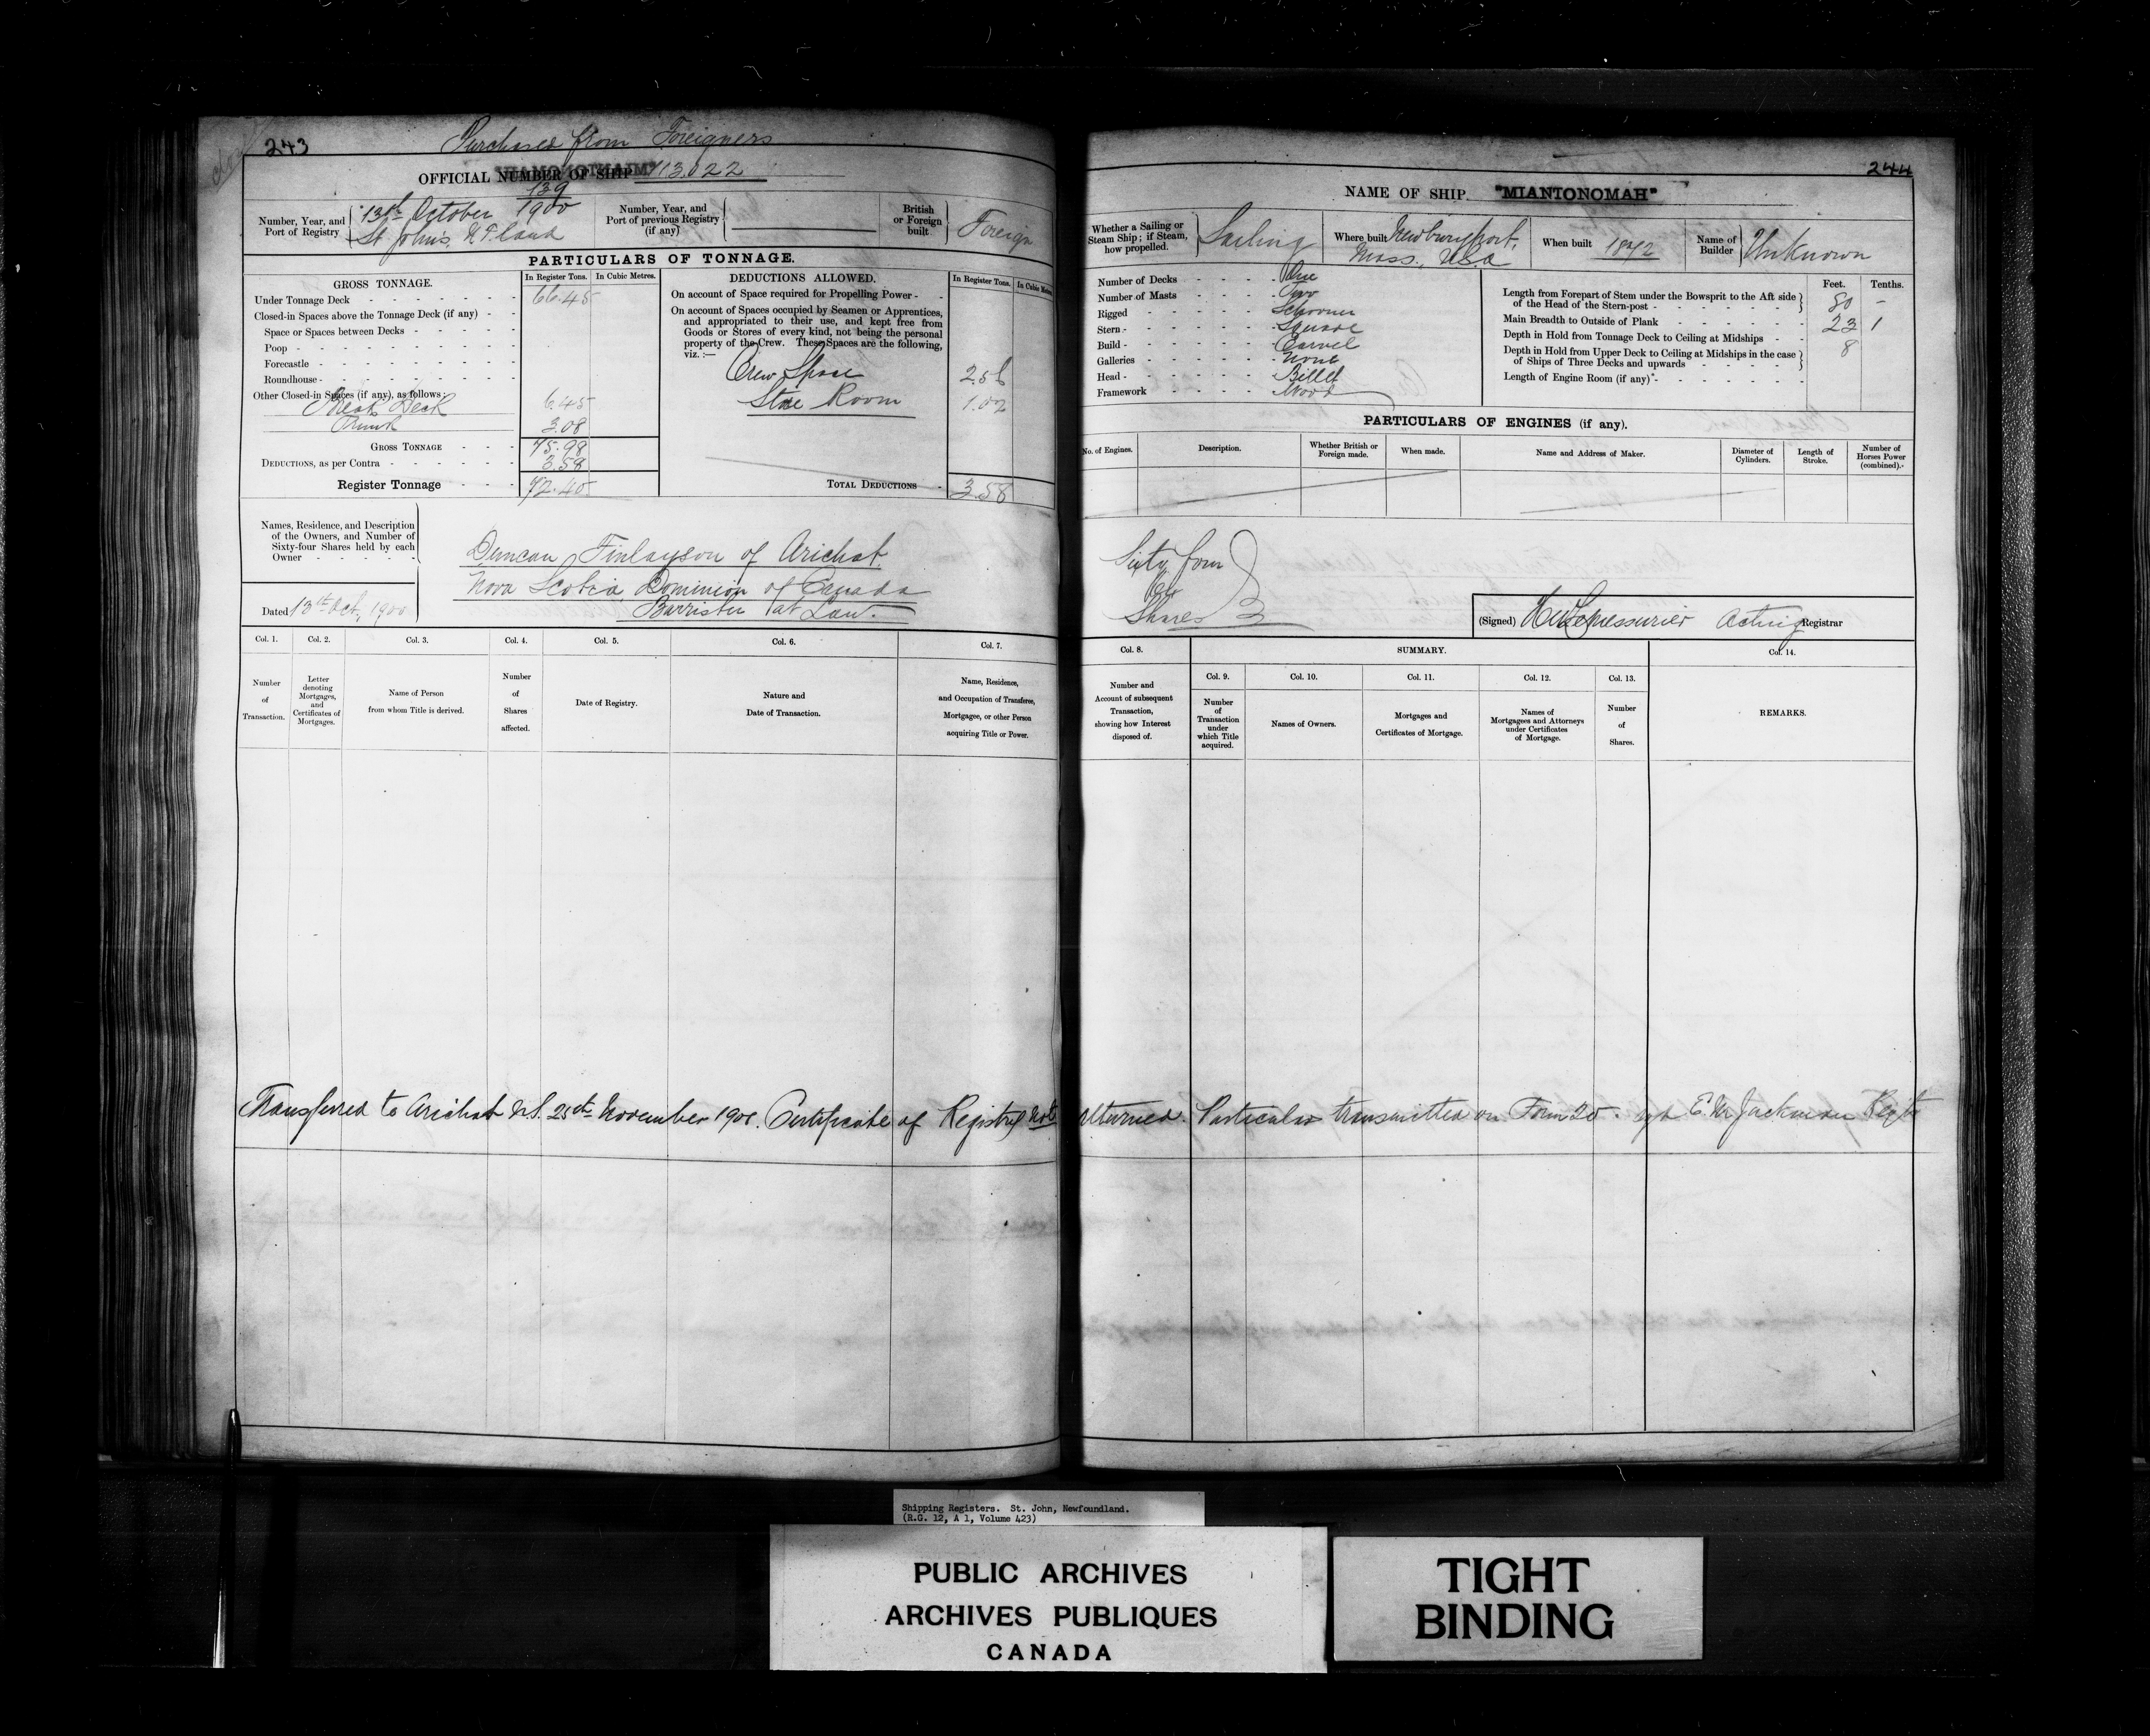 243
Purchased from Foreigners
OFFICIAL NUMBER OF SHIP 113.022
Number, Year, and Port of Registry
139
13th October 1900
St John's, Nfland
Number, Year, and Port of previous Registry (if any)
British or Foreign built
Foreign
PARTICULARS OF TONNAGE.
GROSS TONNAGE.
In Register Tons.
In Cubic Metres.
Under Tonnage Deck 66.45
Closed-in Spaces above the Tonnage Deck (if any)
Space or Spaces between Decks
Poop
Forecastle
Roundhouse
Other Closed-in Spaces (if any), as follows:
Break Deck 6.45
Trunk 3.08
GROSS TONNAGE 75.98
DEDUCTIONS, as per Contra 3.58
Register Tonnage 72.40
DEDUCTIONS ALLOWED.
In Register Tons.
In Cubic Metres
On account of Space required for Propelling Power
On account of Spaces occupied by Seamen or Apprentices,
and appropriated to their use, and kept free from
Goods or Stores of every kind, not being the personal
property of the Crew. These Spaces are the following,
viz.:—
Crew Space 2.56
Store Room 1.02
TOTAL DEDUCTIONS 3.58
Names, Residence, and Description
of the Owners, and Number of
Sixty-four Shares held by each
Owner
Duncan Finlayson of Arichat
Nova Scotia, Dominion of Canada
Barrister at Law.
Dated 13th Oct, 1900
Col. 1.
Number
of
Transaction.
Col. 2.
Letter
denoting
Mortgages,
and
Certificates of
Mortgages.
Col. 3.
Name of Person
from whom Title is derived.
Col. 4.
Number
of
Shares
affected.
Col. 5.
Date of Registry.
Col. 6.
Nature and
Date of Transaction.
Col. 7.
Name, Residence,
and Occupation of Transferee,
Mortgagee, or other Person
acquiring Title or Power.
244
NAME OF SHIP. "MIANTONOMAH"
Whether a Sailing or
Steam Ship; if Steam,
how propelled.
Sailing
Where built Newburyport,
Mass., U.S.A
When built 1872
Name of Builder
Unknown
Number of Decks One
Number of Masts Two
Rigged Schooner
Stern Square
Build Carvel
Galleries None
Head Billet
Framework Wood
Feet. Tenths.
Length from Forepart of Stem under the Bowsprit to the Aft side
of the Head of the Stern-post 80 -
Main Breadth to Outside of Plank 23 1
Depth in Hold from Tonnage Deck to Ceiling at Midships 8
Depth in Hold from Upper Deck to Ceiling at Midships in the case
of Ships of Three Decks and upwards
Length of Engine Room (if any)
PARTICULARS OF ENGINES (if any).
No. of Engines.
Description.
Whether British or
Foreign made.
When made.
Name and Address of Maker.
Diameter of
Cylinders.
Length of
Stroke.
Number of
Horses Power
(combined).
Sixty four
Shares
(Signed) Acting Registrar
Col. 8.
Number and
Account of subsequent
Transaction,
showing how Interest
disposed of.
SUMMARY.
Col. 9.
Number
of
Transaction
under
which Title
acquired.
Col. 10.
Names of Owners.
Col. 11.
Mortgages and
Certificates of Mortgage.
Col. 12.
Names of
Mortgagees and Attorneys
under Certificates
of Mortgage.
Col. 13.
Number
of
Shares.
Col. 14.
REMARKS.
Transferred to Arichat N.S. November Certificate of Registry not returned. Particulars transmitted on Form 20. sgd E. M. Jackman Regtr
Shipping Registers. St. John, Newfoundland.
(R.G. 12, A 1, Volume 423)
PUBLIC ARCHIVES
ARCHIVES PUBLIQUES
CANADA
TIGHT
BINDING